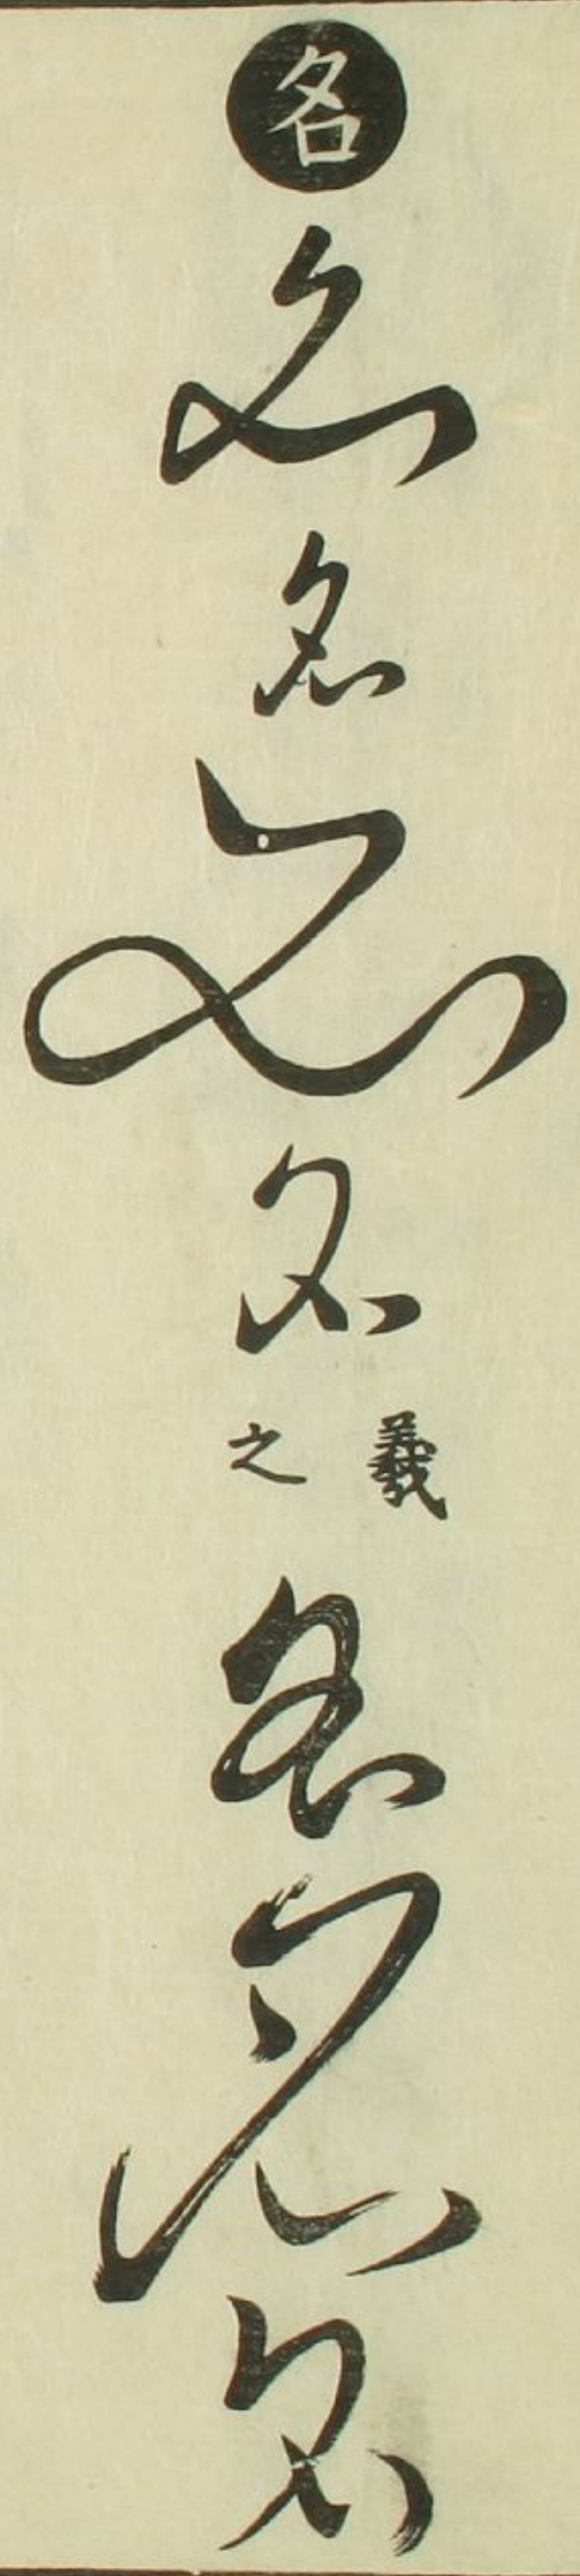 各
各
各
各
各
羲之
各
各
各